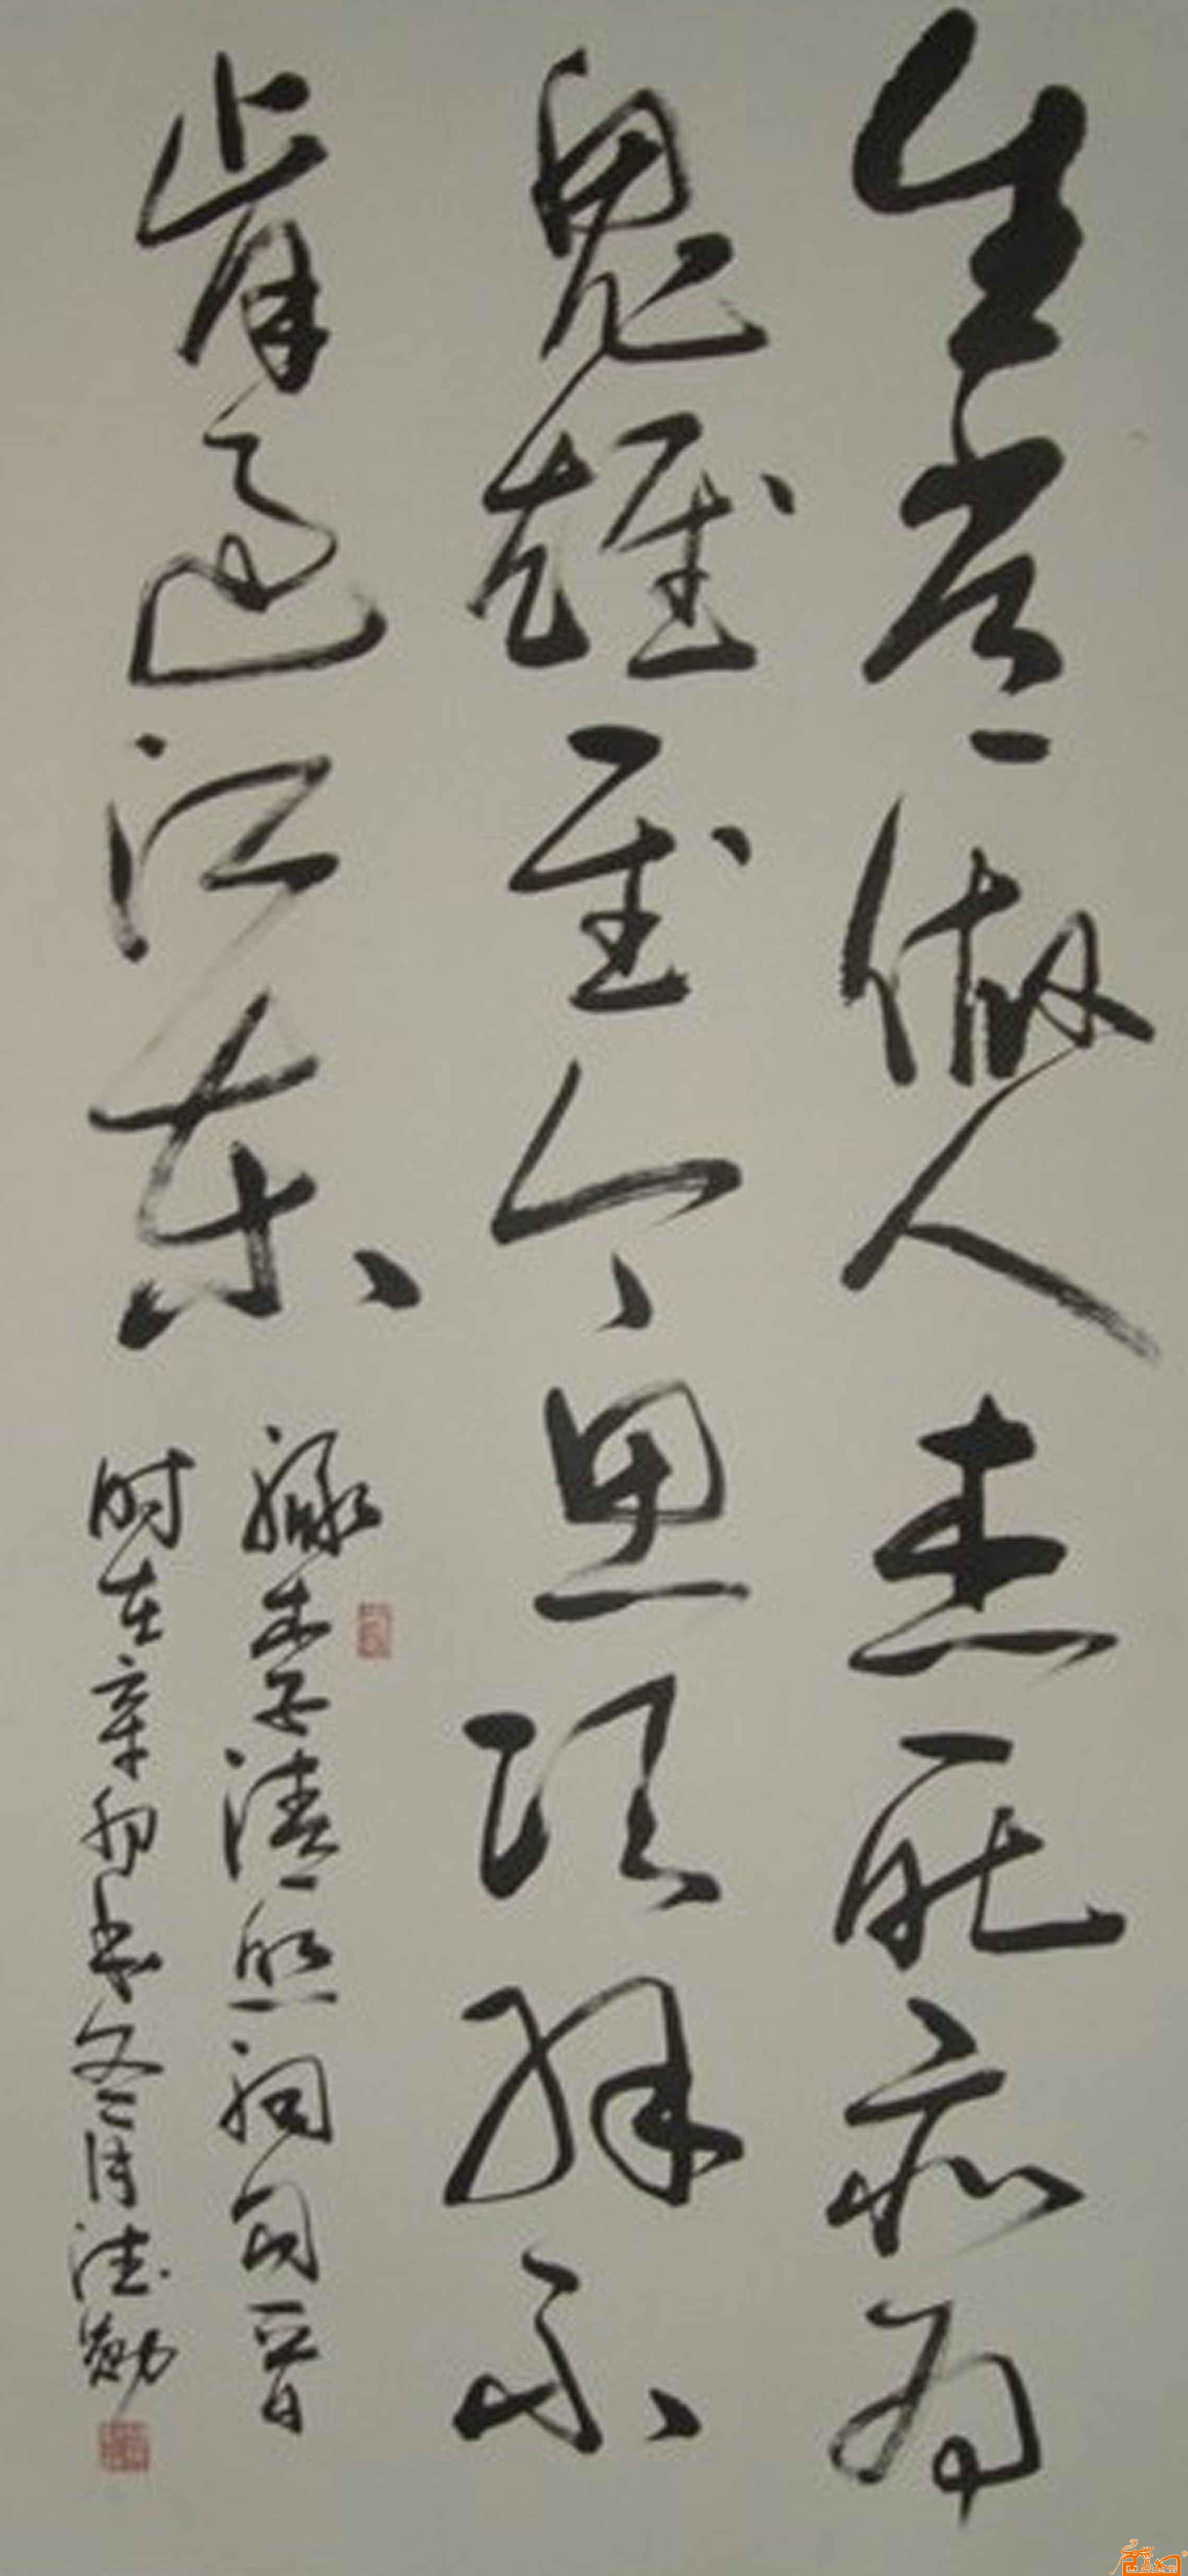 生当做人杰死亦为
鬼雄至今思项羽不
肯过江东
录李清照词句一首
时在辛卯书冬月德勋